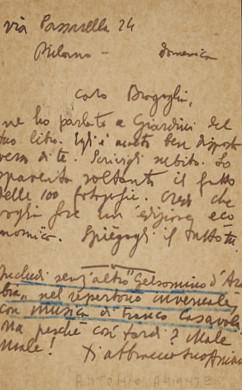 via Passarella 24
Milano – domenica
caro Bragaglia,
ne ho parlato a Giardini del
tuo libro. Egli è molto ben dispost
verso di te. Scrivigli subito. Lo
spaventa soltanto il fatto
delle 100 fotografie. Credo che
voglia fare un'edizione eco
nomica. Spiegagli il tutto tu.
Includi senz'altro "Gelsomino d'Ara
bia" nel repertorio invernale,
con musica di Franco Casavola
ma perchè così tardi? Male
male! Ti abbraccio tuo